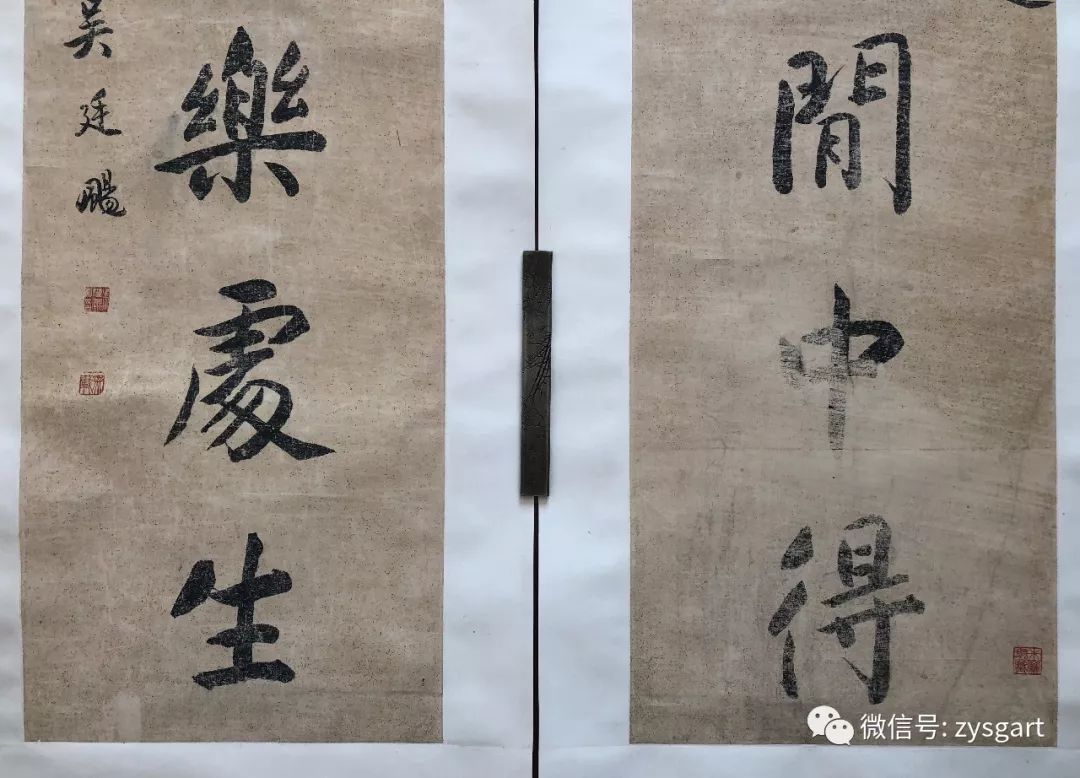 閒中得
樂處生
吳廷颺
微信号: zysgart